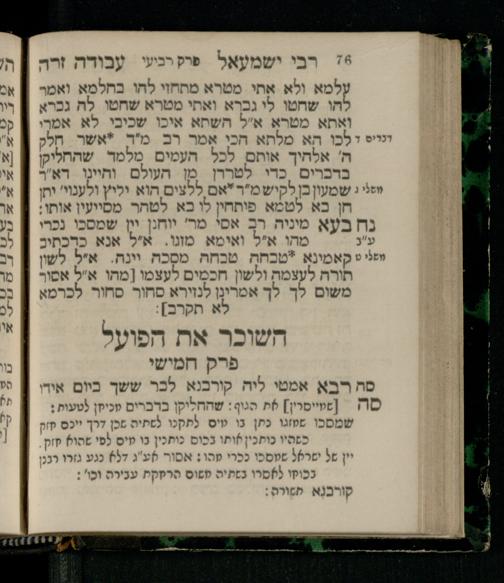 76 רבי ישמעאל פרק רביעי עבודה זרה
עלמא ולא אתי מטרא מתחזי להו בחלמא ואמר
להו שחטו לי גברא ואתי מטרא שחטו לה גברא
ואתא מטרא א"ל השתא איכו שכיבי לא אמרי
דברים ד לכו הא מלתא הכי אמר רב מ"ד *אשר חלק
ה' אלהיך אותם לכל העמים מלמד שהחליקן
בדברים כדי לטרדן מן העולם והיינו דא"ר
משלי ג שמעון בן לקיש מ"ד *אם ללצים הוא יליץ ולענוי' יתן
חן בא לטמא פותחין לו בא לטהר מסייעין אותו:
נח בעא מיניה רב אסי מר' יוחנן יין שמסכו נכרי
ע"ב מהו א"ל ואימא מזגו. א"ל אנא כדכתיב
משלי ט קאמינא *טבחה טבחה מסכה יינה. א"ל לשון
תורה לעצמה ולשון חכמים לעצמו [מהו א"ל אסור
משום לך לך אמרינן לנזירא סחור סחור לכרמא
לא תקרב]:
השוכר את הפועל
פרק חמישי
סח רבא אמטי ליה קורבנא לבר ששך ביום אידו
סה [שמייסרין] את הגוף: שהחליקן בדברים
שמסכו שמזגו נתן בו מים לתקנו לשתיה שכן דרך יינם חזק
כשהיו נותנין אותו בכוס נותנין בו מים לפי שהוא חזק.
יין של ישראל שמסכו נכרי מהו: אסור אע"ג דלא נגע גזרו רבנן
לאסרו בשתיה משום הרחקת עבירה וכו':
קורבנא תשורה: